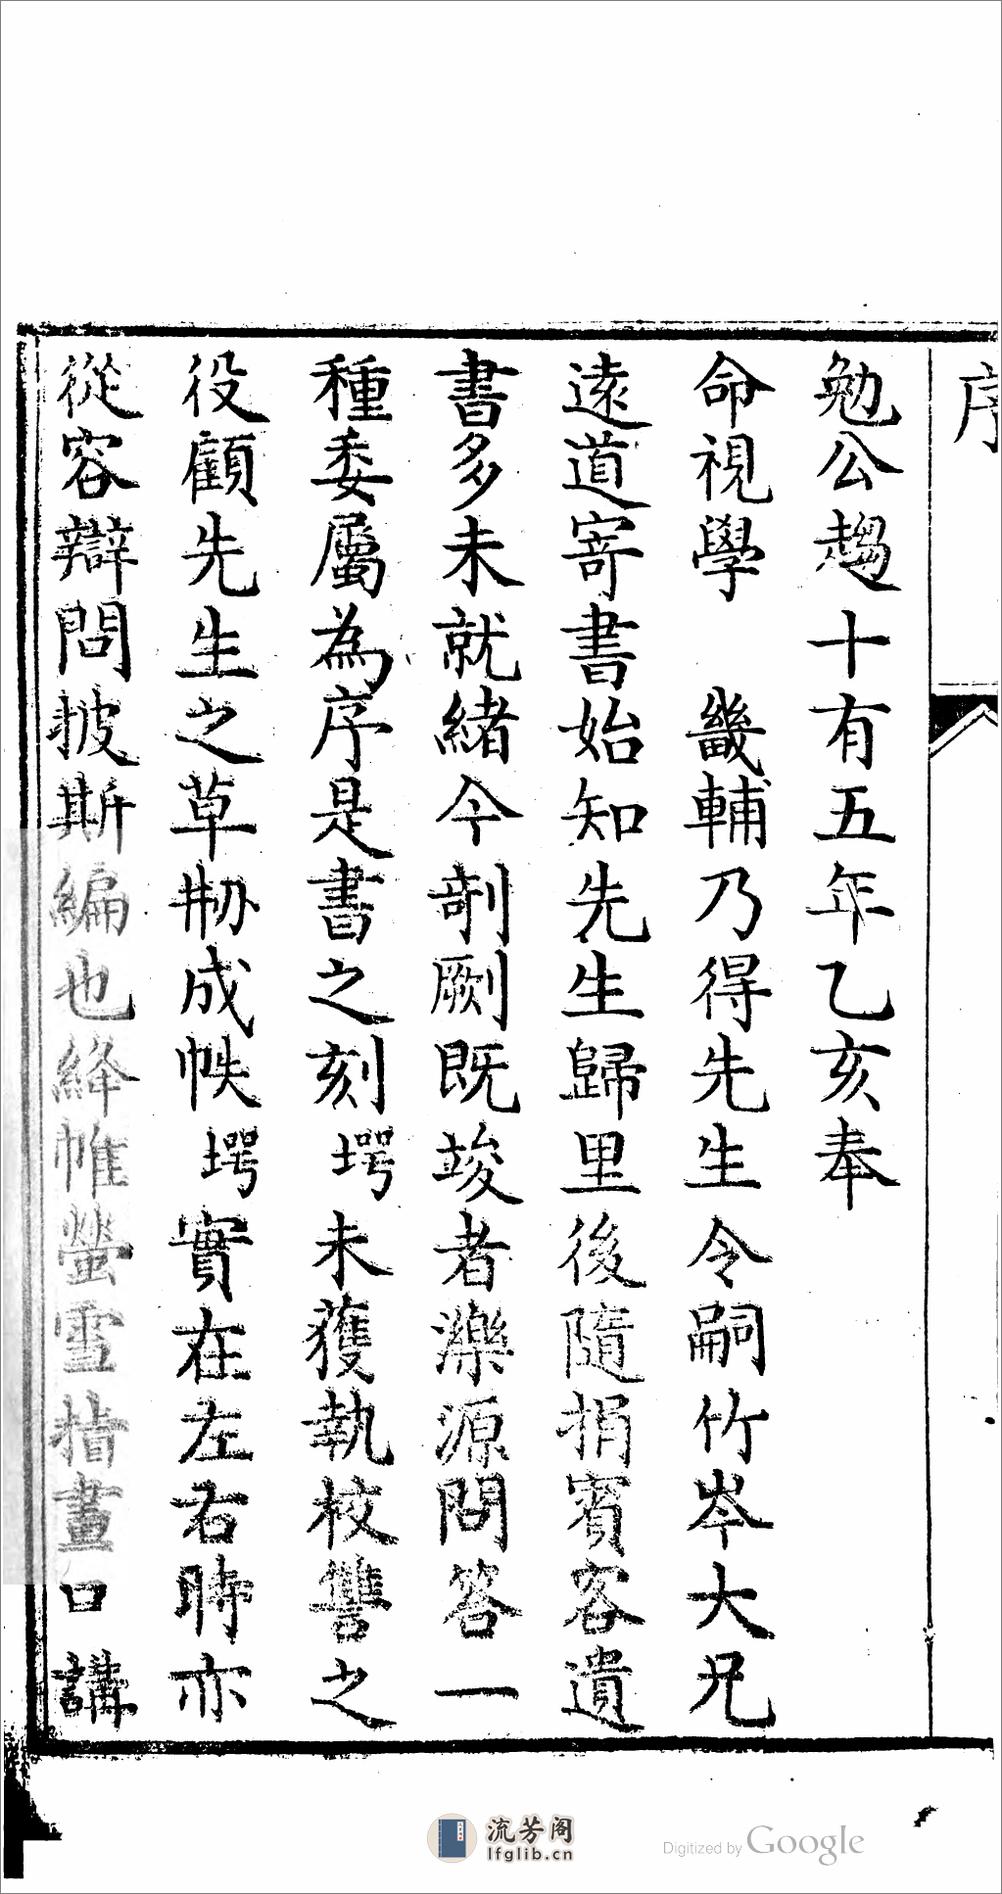 序
勉公趨十有五年乙亥奉
命視學　畿輔乃得先生令嗣竹岑大兄
遠道寄書始知先生歸里後隨捐賓客遺
書多未就緒今剞劂既竣者濼源問答一
種委屬為序是書之刻堮未獲執校讐之
役顧先生之草刱成帙堮實在左右時亦
從容辯問披斯編也絳帷螢雪指畫口講
流芳阁
lfglib.cn
Digitized by Google